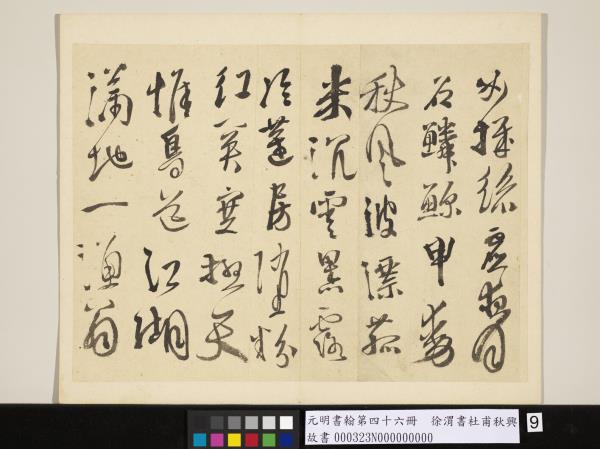 女機絲虛夜月
石鱗鯨甲動
秋風波漂菰
米沉雲黑露
冷蓮房墜粉
紅關塞極天
惟鳥道江湖
滿地一漁翁
元明書翰第四十六冊 徐渭書杜甫秋興
故書000323N000000000
9